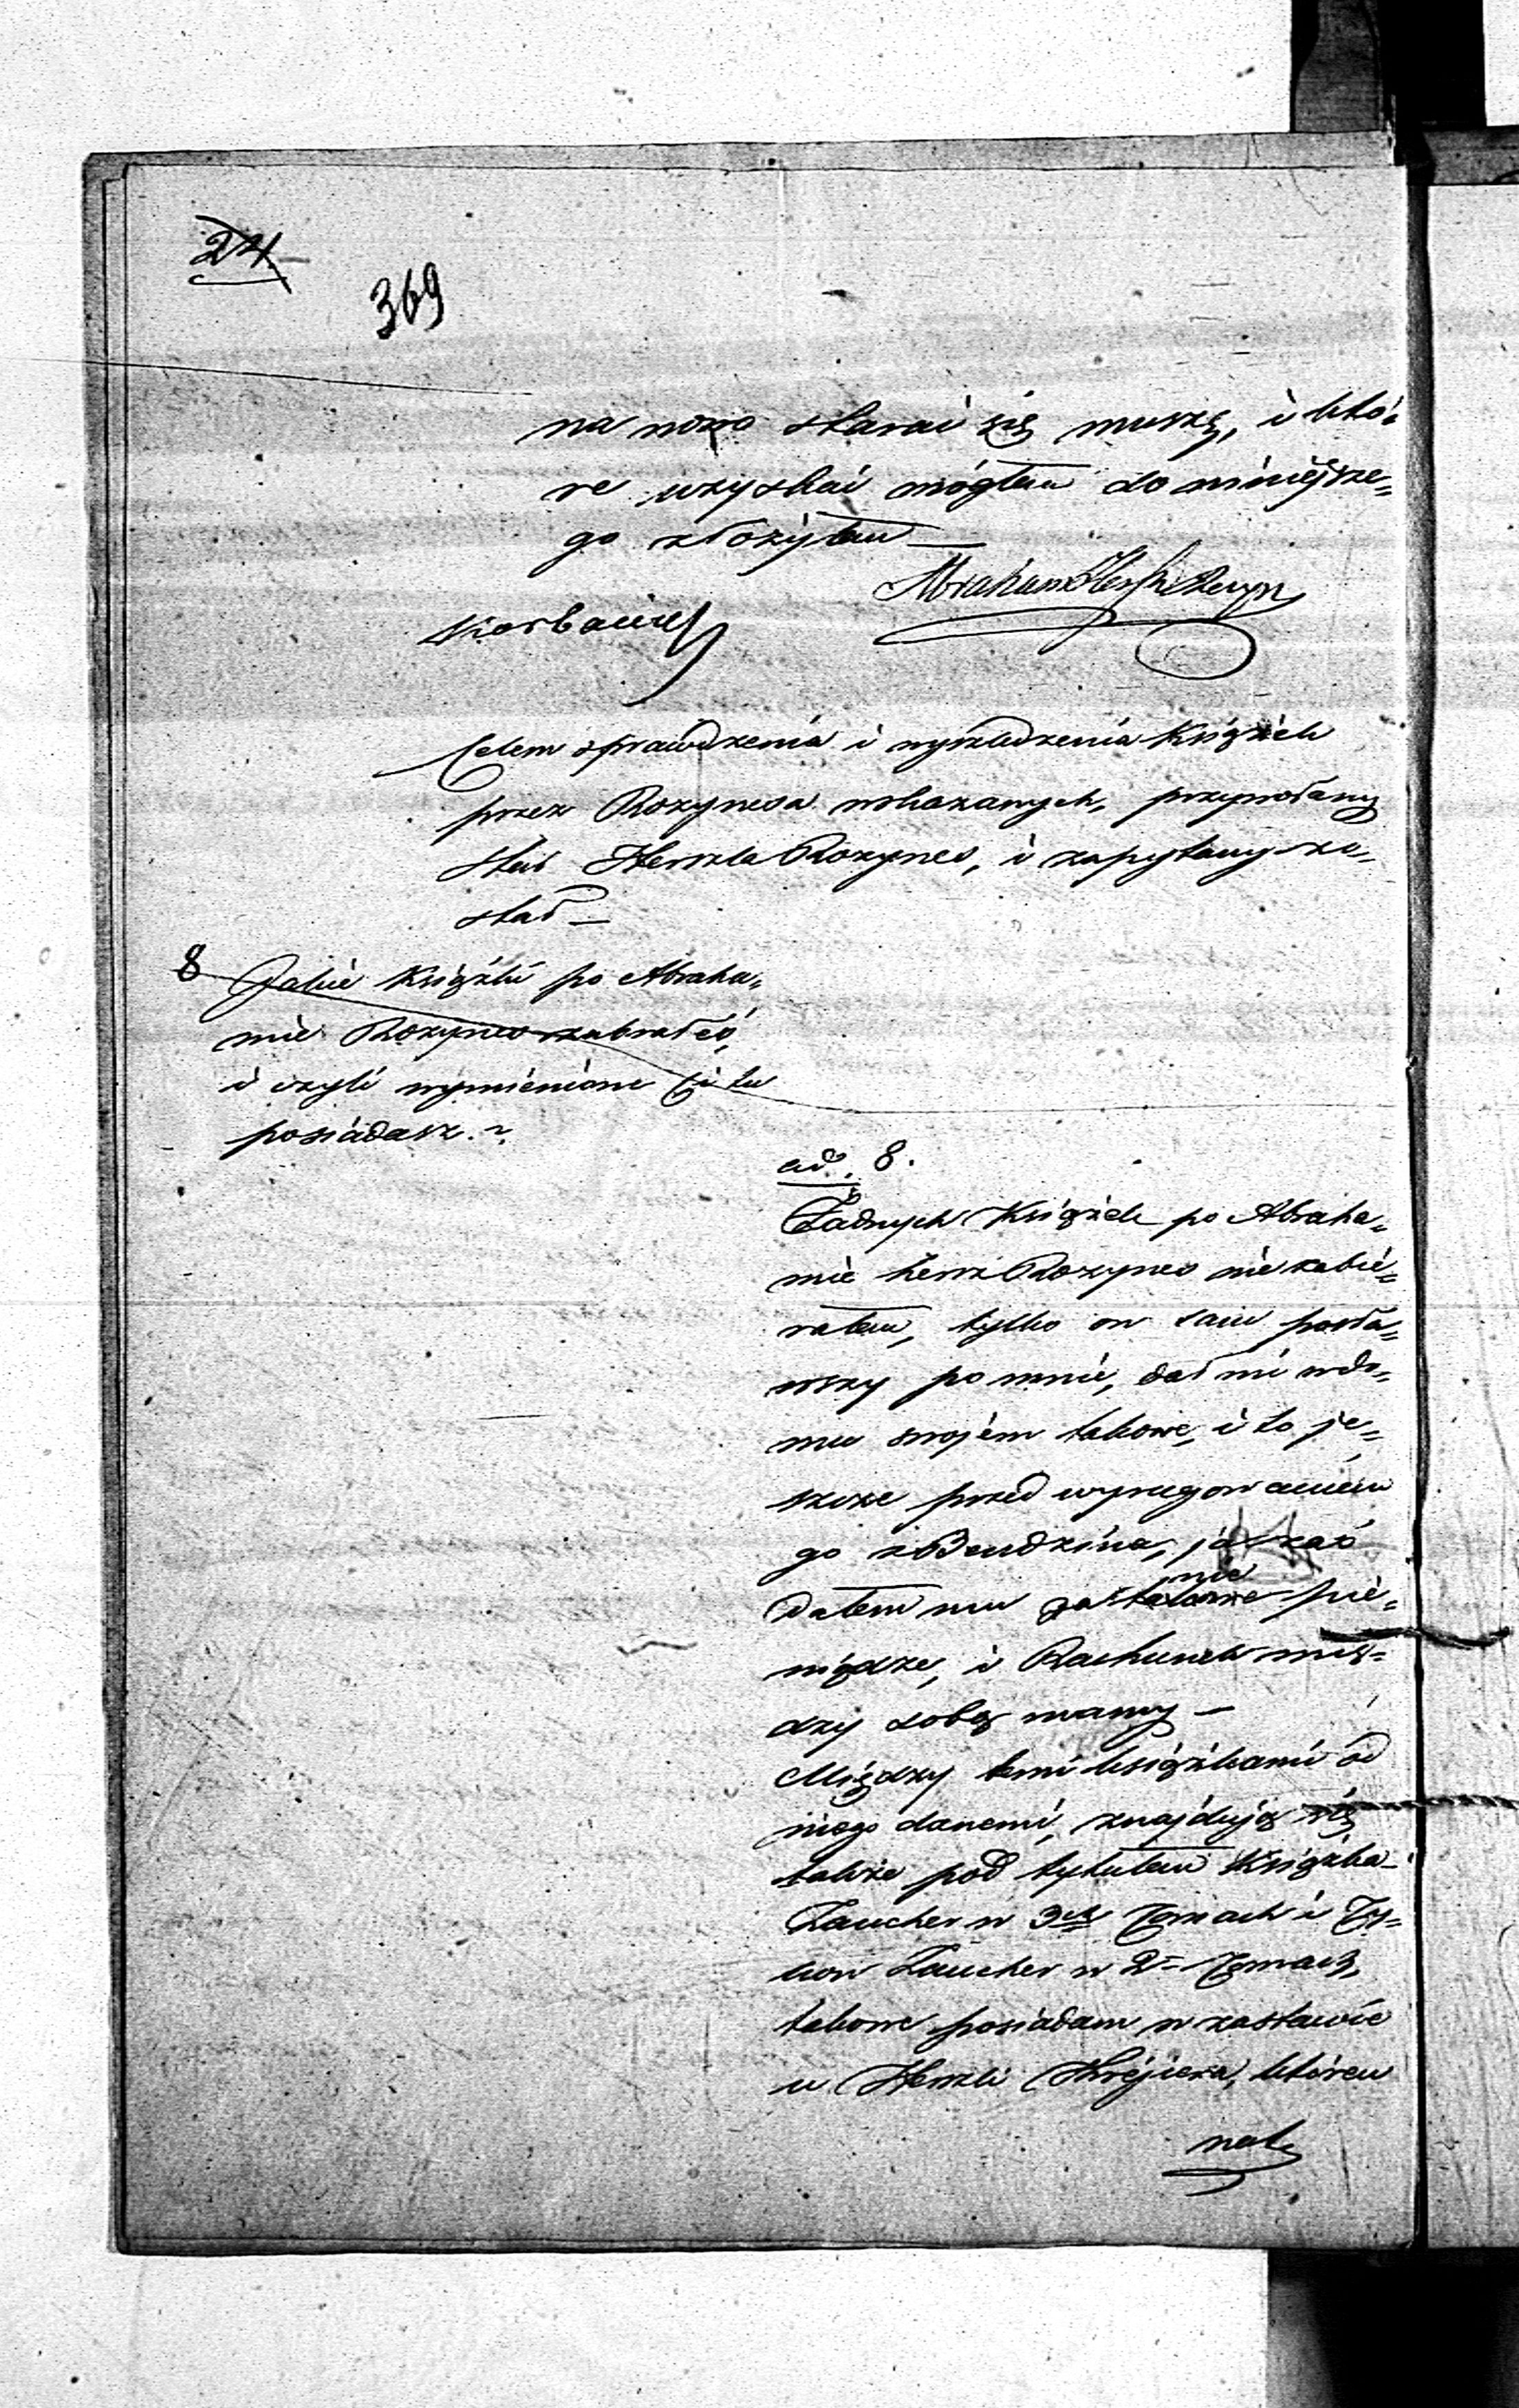 24
369
na nowo starać się muszę, i któ-
re uzyskać mógłem do niniejsze-
go złożyłem —
Abraham Hersz
Celem sprawdzenia i wyśledzenia Książek
przez Rozynesa wskazanych, przywołany
Herszla Rozynes, i zapytany zo-
stał —
8 Jakie Książki po Abraha-
mie Rozynes zabrałeś,
i czyli wymienione Ci tu
posiadasz. ?
ad. 8.
Żadnych Książek po Abraha-
mie Hersz Rozynes nie zabie-
rałem, tylko on sam posła-
wszy po mnie, dał mi w do-
mu swojem takowe, i to je-
szcze przed wyrugowaniem
go z Bendzina, ja zaś
dałem mu za takowe pie-
nie
niądze, i Rachunek mię-
dzy sobą mamy —
Między temi książkami od
niego danemi, znajdują się
także pod tytułem Książka
w 3ch Tomach i Ty-
w 2 Tomach,
takowe posiadam w zastawie
u Herszli Krejcera, którem